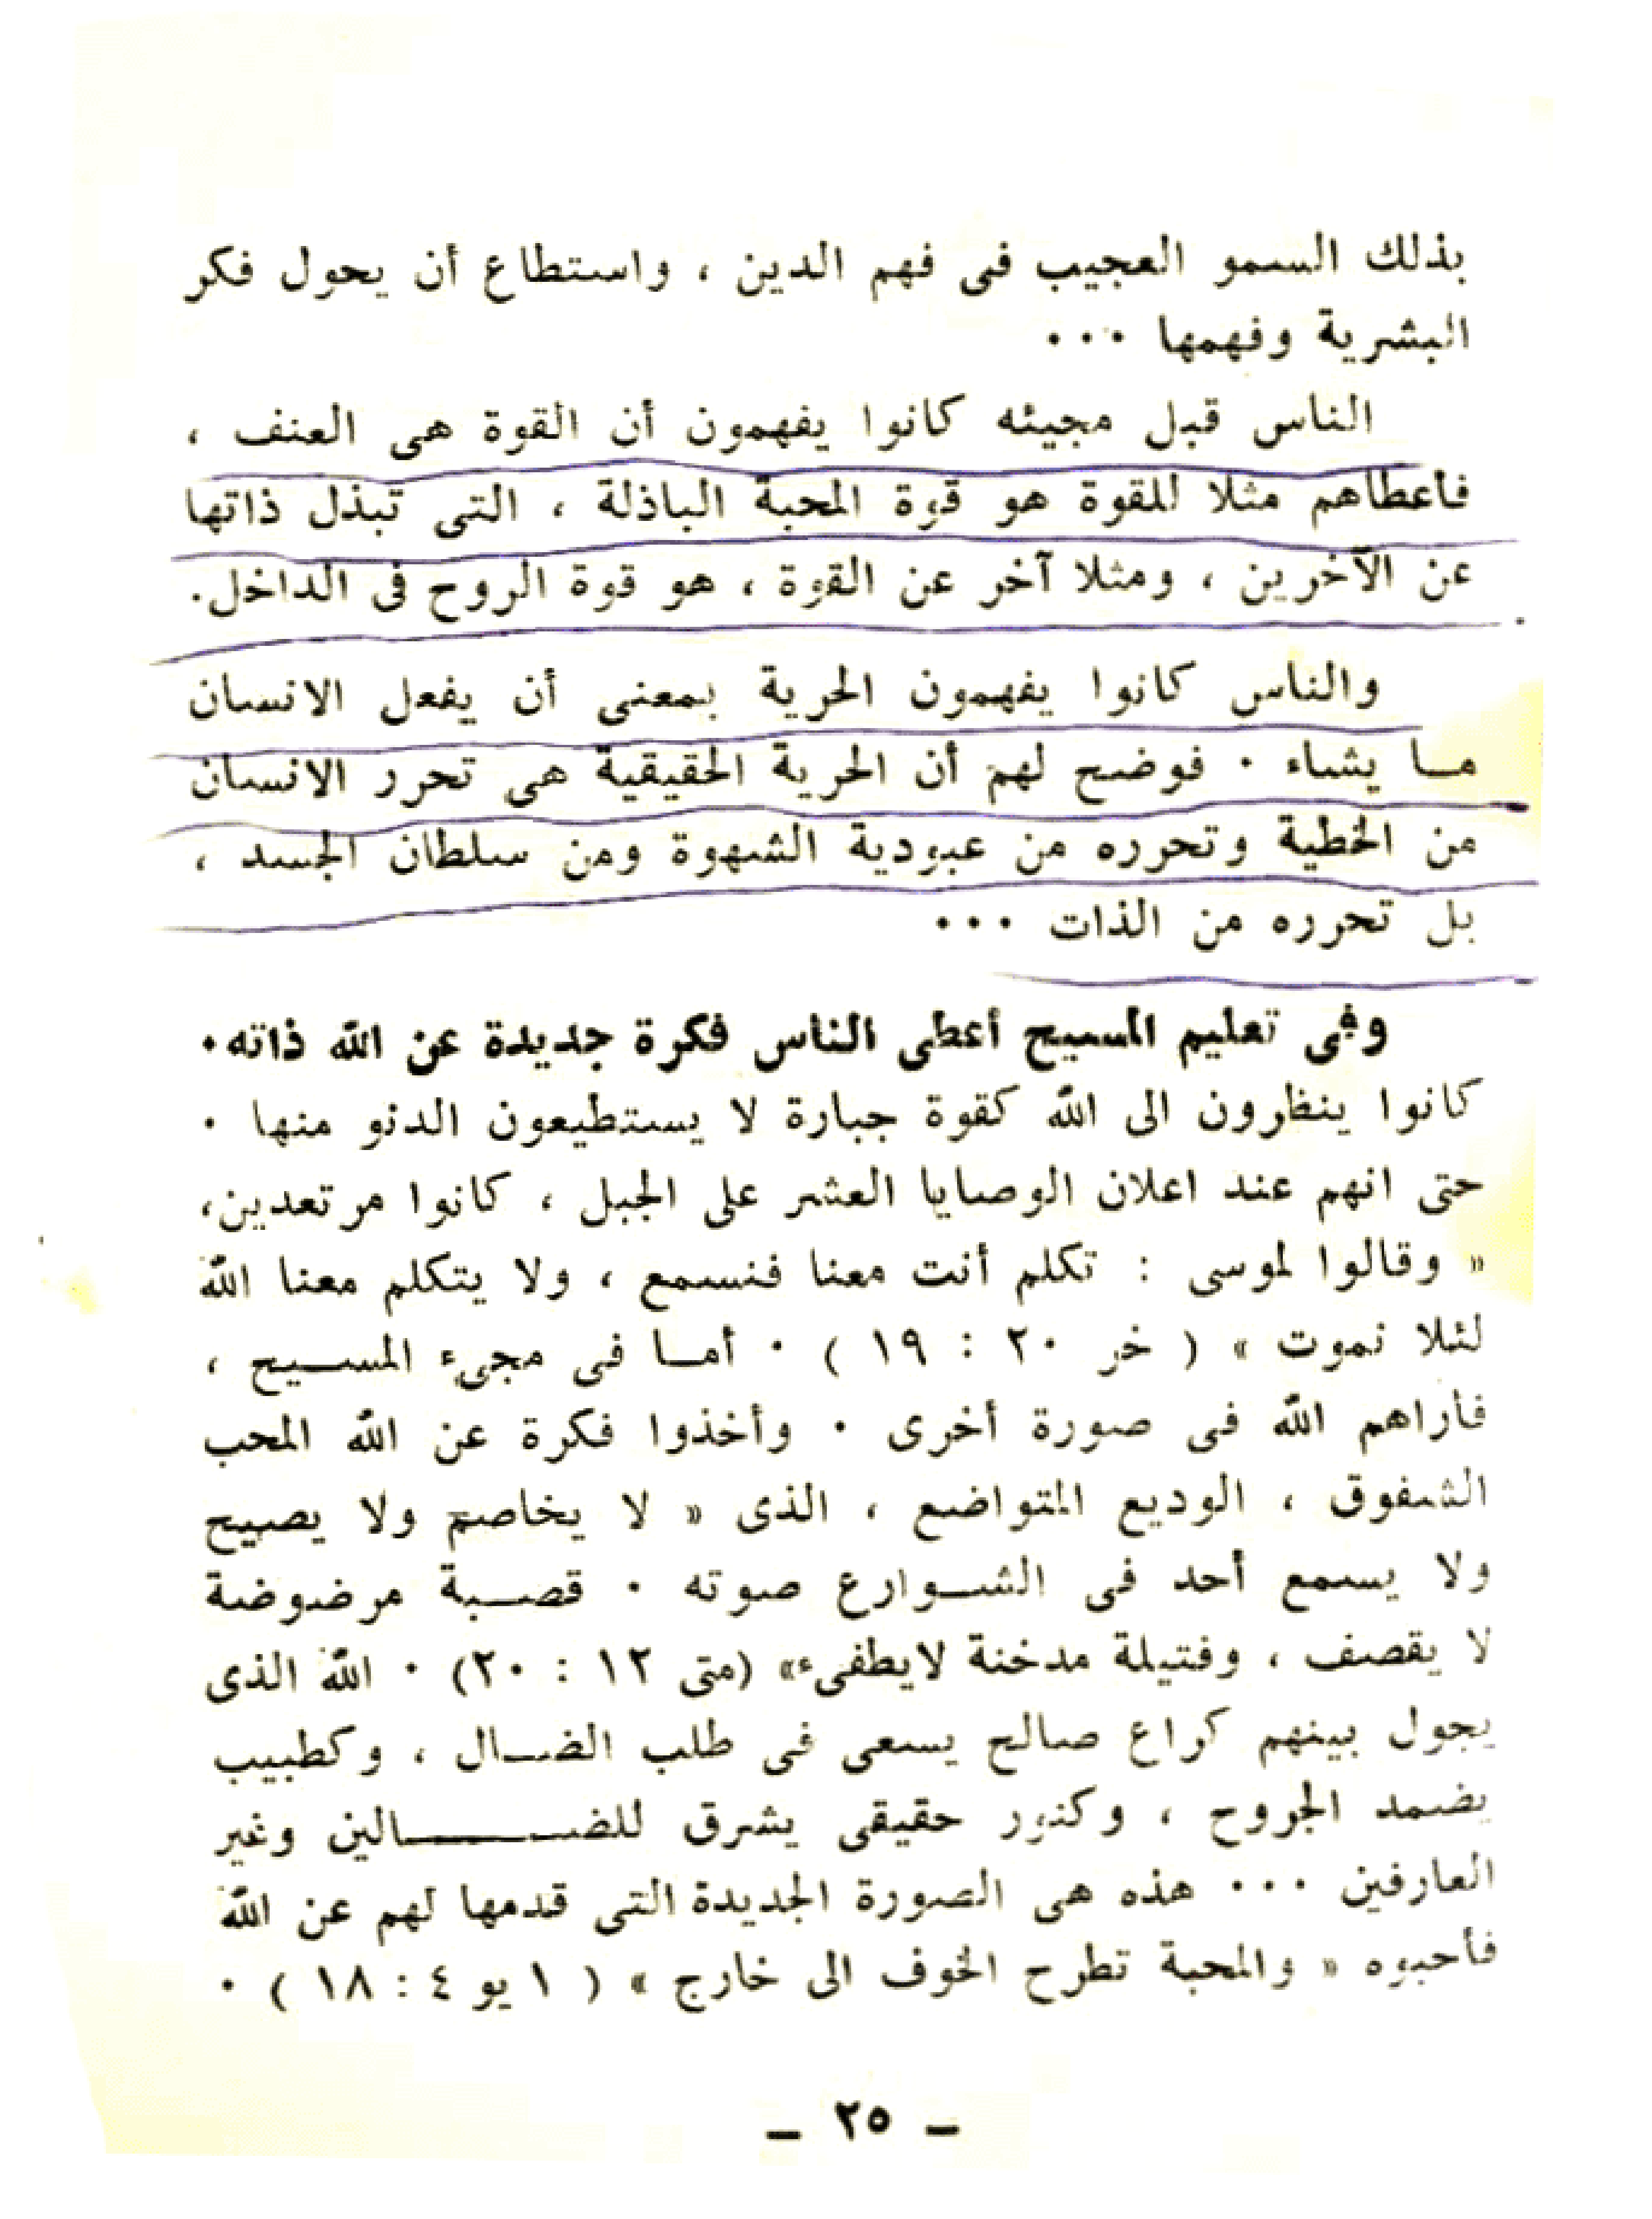 بذلك السمو العجيب فى فهم الدين ، واستطاع أن يحول فكر
البشرية وفهمها ٠٠٠
الناس قبل مجيئه كانوا يفهمون أن القوة هى العنف ،
فأعطاهم مثلا للقوة هو قوة المحبة الباذلة ، التى تبذل ذاتها
عن الآخرين ، ومثلا آخر عن القوة ، هو قوة الروح فى الداخل.
والناس كانوا يفهمون الحرية بمعنى أن يفعل الانسان
مـا يشاء ٠ فوضح لهم أن الحرية الحقيقية هى تحرر الانسان
من الخطية وتحرره من عبودية الشهوة ومن سلطان الجسد ،
بل تحرره من الذات ٠٠٠
وفى تعليم المسيح أعطى الناس فكرة جديدة عن الله ذاته٠
كانوا ينظرون الى الله كقوة جبارة لا يستطيعون الدنو منها ٠
حتى انهم عند اعلان الوصايا العشر على الجبل ، كانوا مرتعدين،
« وقالوا لموسى : تكلم أنت معنا فنسمع ، ولا يتكلم معنا الله
لئلا نموت » ( خر ٢٠ : ١٩ ) ٠ أمـا فى مجىء المسـيح ،
فأراهم الله فى صورة أخرى ٠ وأخذوا فكرة عن الله المحب
الشفوق ، الوديع المتواضع ، الذى « لا يخاصم ولا يصيح
ولا يسمع أحد فى الشـوارع صوته ٠ قصـبة مرضوضة
لا يقصف ، وفتيلة مدخنة لايطفىء» (متى ١٢ : ٢٠) ٠ الله الذى
يجول بينهم كراع صالح يسعى فى طلب الضـال ، وكطبيب
يضمد الجروح ، وكنور حقيقى يشرق للضــــالين وغير
العارفين ٠٠٠ هذه هى الصورة الجديدة التى قدمها لهم عن الله
فأحبوه « والمحبة تطرح الخوف الى خارج » ( ١ يو ٤ : ١٨ ) ٠
ـ ٢٥ ـ